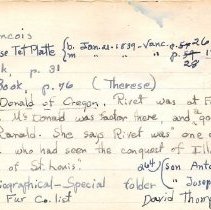 ncois
se Tet Platte { b. Jan. 21-1839-Vanc. p. 26
m " " " p. 28
k, p. 31
Book, p. 76 (Therese)
Donald of Oregon, Rivet was at F
. McDonald was sailor there, and "go
Ranald. She says Rivet was "one
who had seen the conquest of Illi
of St. Louis."
2nd son Anto
iographical-Special folder " Joseph
Fur Co. list David Thomp